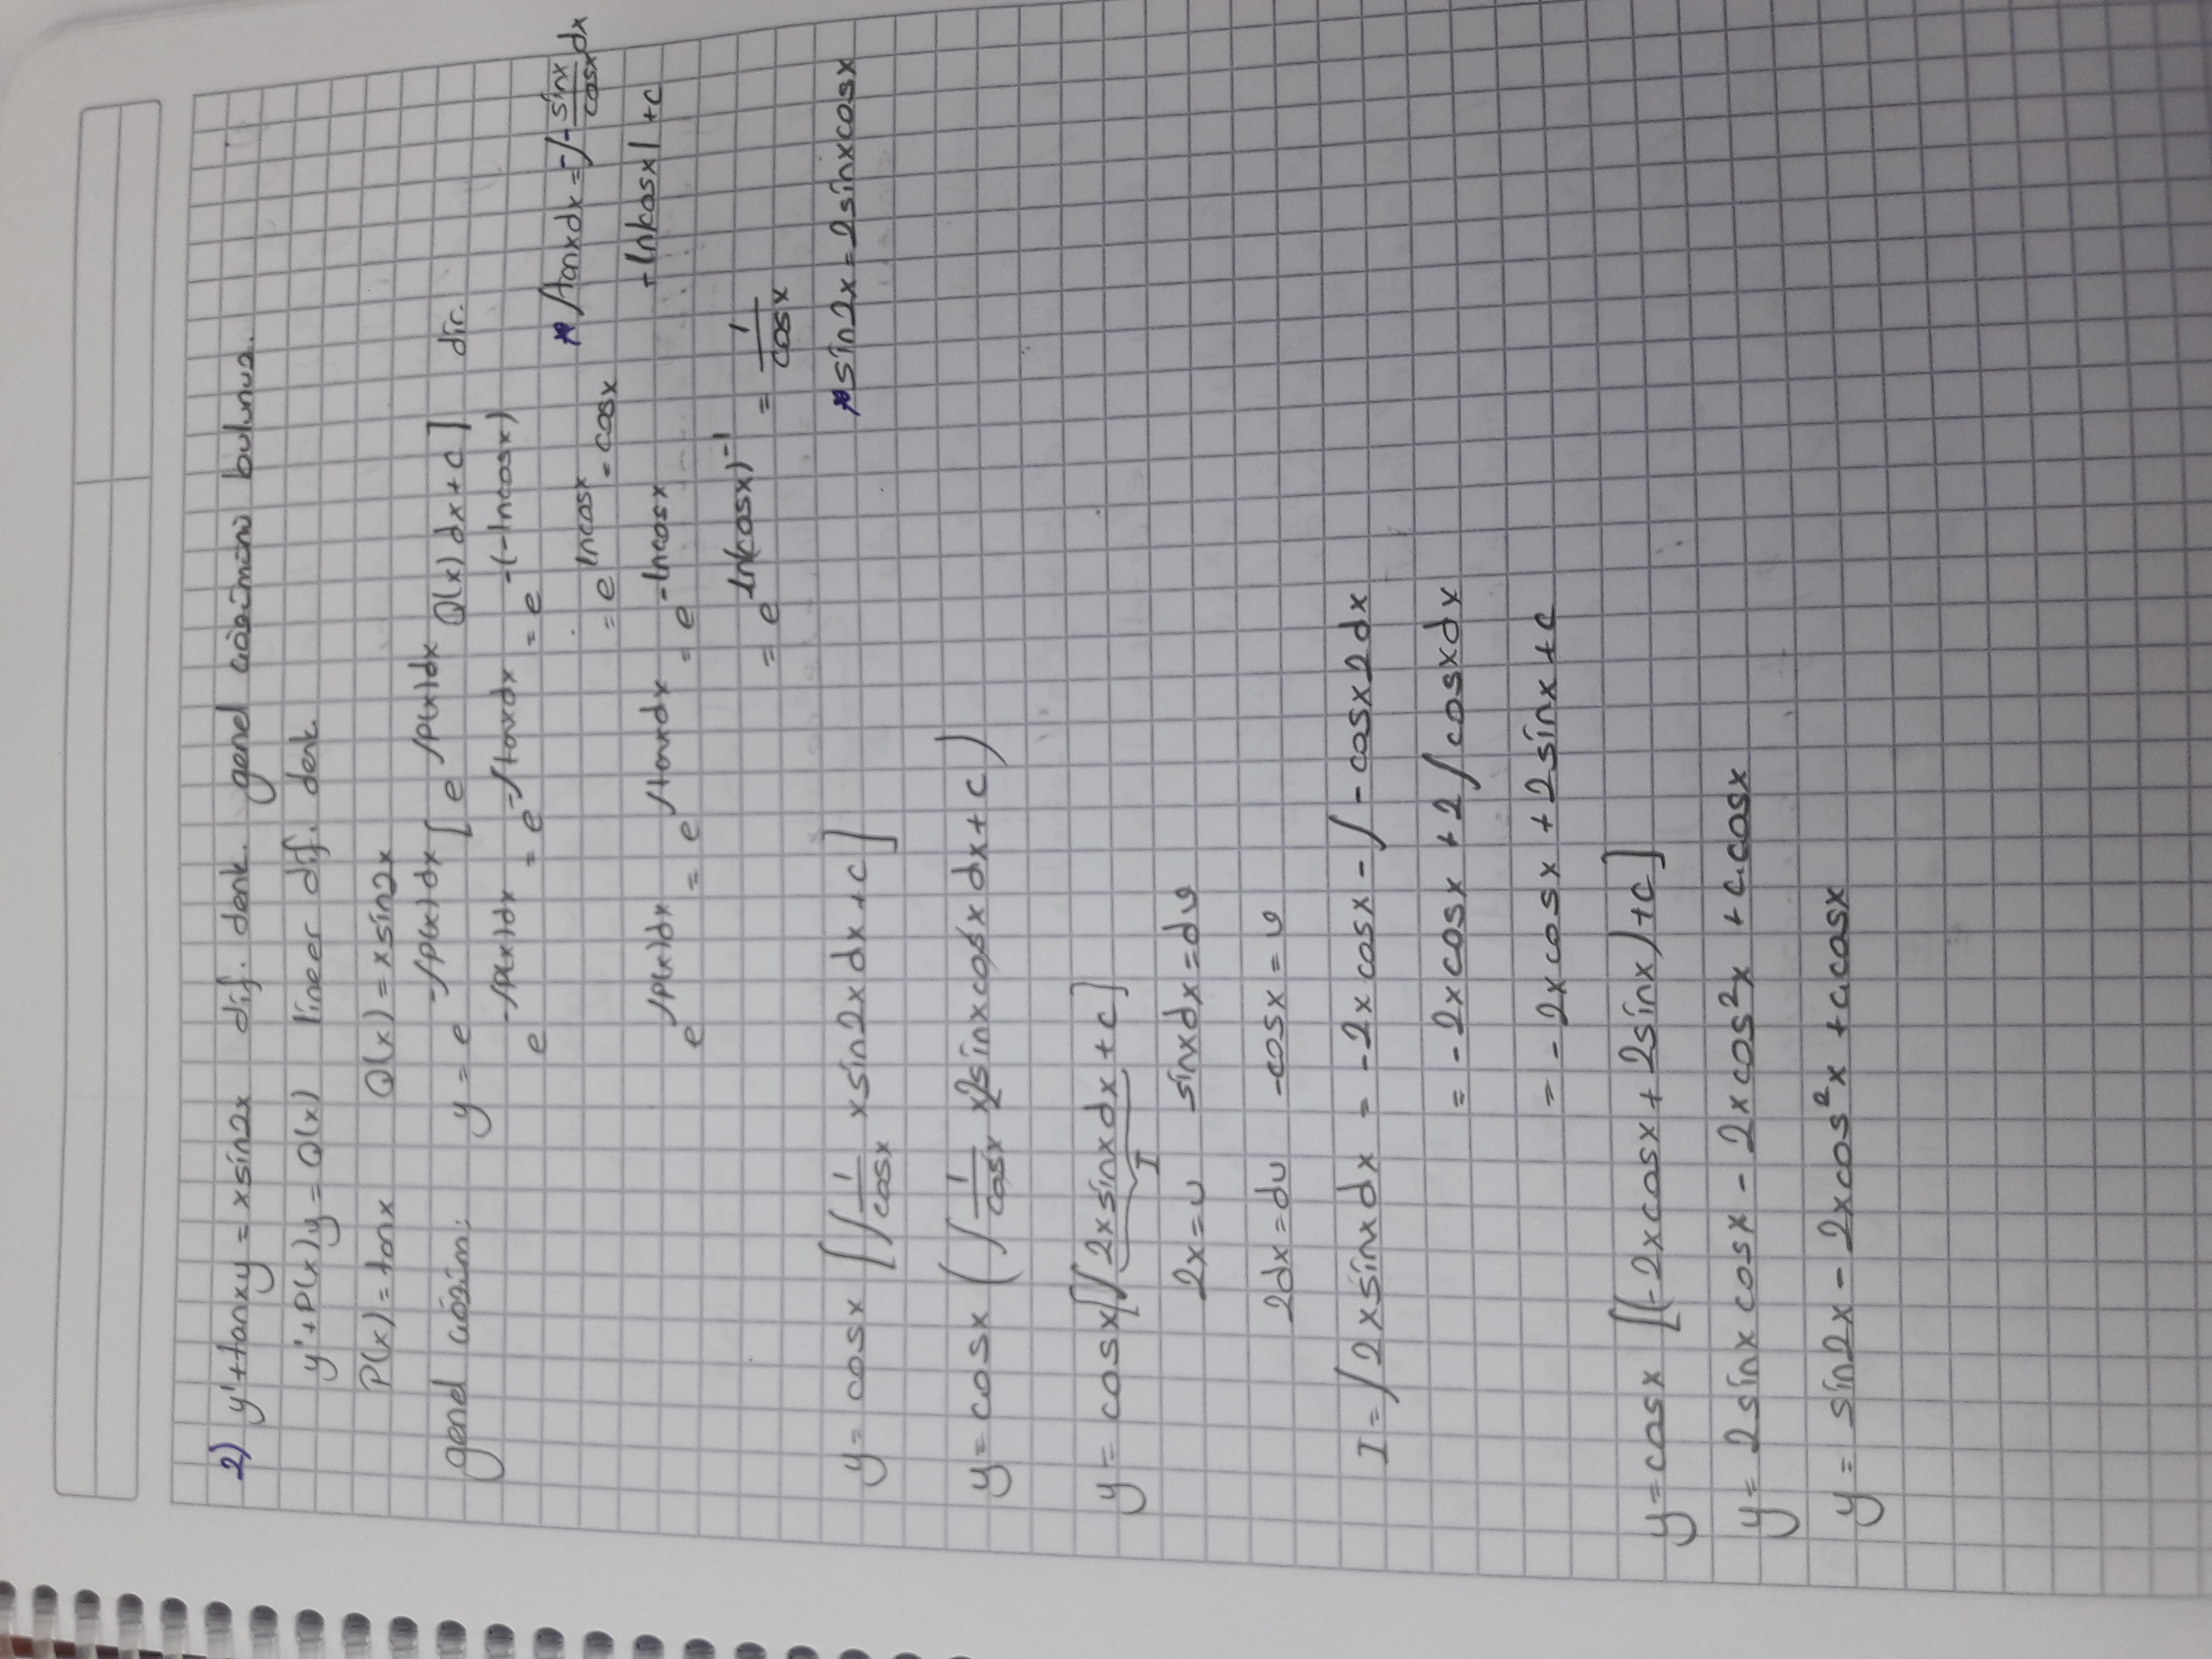 2) y'+tanxy = xsin2x dif. denk. genel çözümünü bulunuz.
y'+P(x)y = Q(x) lineer dif. denk.
P(x)=tanx Q(x)=xsin2x
genel çözüm: y = e^{-∫P(x)dx} [ e^{∫P(x)dx} Q(x)dx+c ] dir.
e^{-∫P(x)dx} = e^{-∫tanxdx} = e^{-(-lncosx)}
* ∫tanxdx = -∫-\frac{sinx}{cosx}dx
= e^{lncosx} = cosx
-ln|cosx|+c
e^{∫P(x)dx} = e^{∫tanxdx} = e^{-lncosx}
= e^{ln(cosx)^{-1}} = \frac{1}{cosx}
y= cosx [∫\frac{1}{cosx} xsin2xdx+c]
* sin2x=2sinxcosx
y=cosx (∫\frac{1}{cosx} x2sinxcosxdx+c)
y= cosx[∫2xsinxdx+c]
I
2x=u sinxdx=dv
2dx=du -cosx=v
I=∫2xsinxdx = -2xcosx-∫-cosx2dx
= -2xcosx+2∫cosxdx
= -2xcosx+2sinx+c
y=cosx [(-2xcosx+2sinx)+c]
y= 2sinxcosx - 2xcos²x + c.cosx
y= sin2x - 2xcos²x + c.cosx